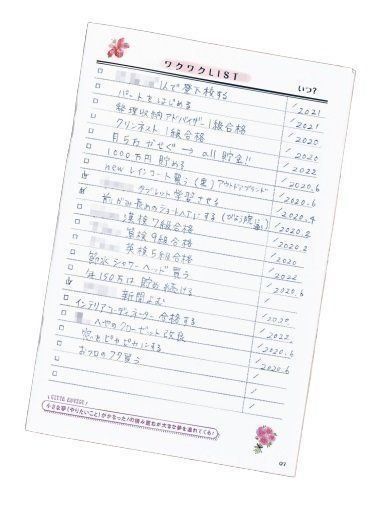 ワクワクLIST
いつ?
人で登下校する / 2021
パートをはじめる / 2021
整理収納アドバイザー1級合格 / 2020
クリンネスト1級合格 / 2020
月5万かせぐ → all貯金!! / 2022
1000万円貯める / 2020.6
newレインコート買う(黒)アウトドアブランド / 2020.6
タブレット学習させる / 2020.4
前がみ長めのショートヘアにする
漢検7級合格 / 2020.2
算検9級合格 / 2020
英検5級合格 / 2022
節水シャワーヘッド買う / 2020.6
年150万は貯め続ける
新聞よむ / 2020
インテリアコーディネーター合格する / 2022
へやのクローゼット改良 / 2020.6
窓をピカピカにする
おフロのフタ買う / 2020.6
小さな夢(やりたいこと)がかなった!の積み重ねが大きな夢を連れてくる!